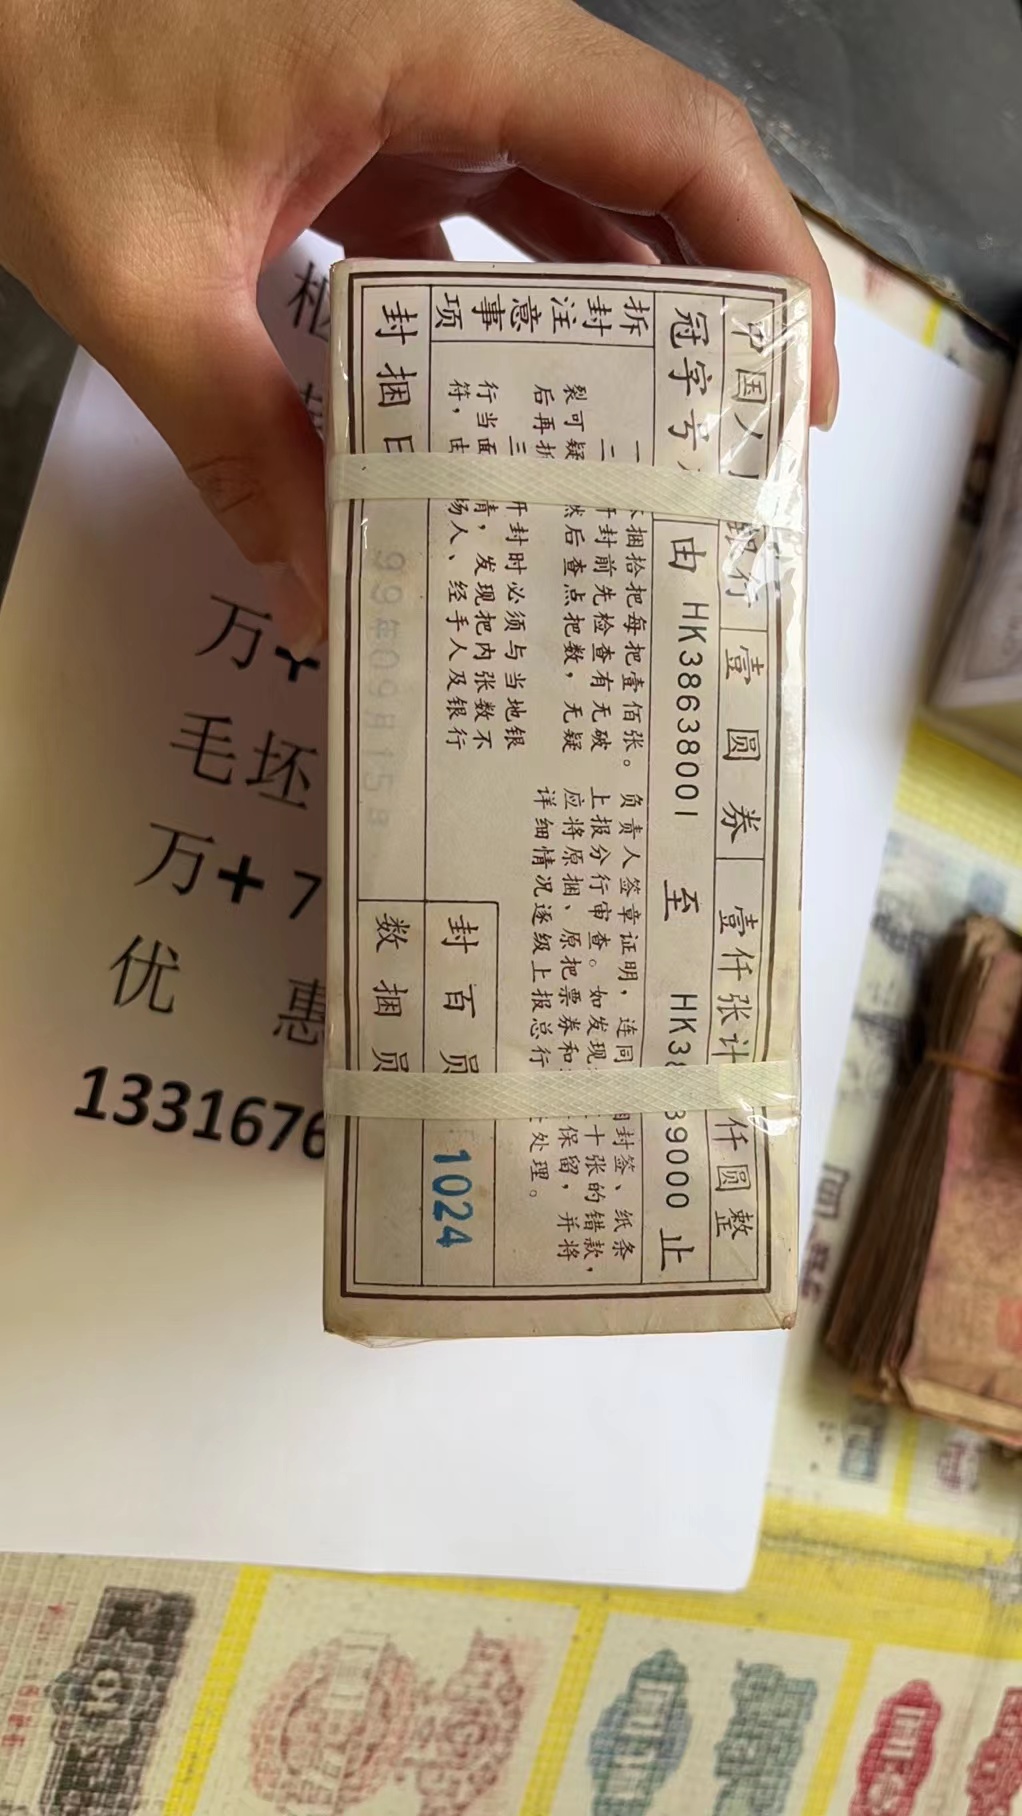 中国人
银行
壹圆券
壹仟张计
仟圆整
冠字号
由 HK38638001 至 HK38
39000 止
拆封注意事项
一
捆拾把每把壹佰张。
二
封前先检查有无破
裂可疑
然后查点把数，无疑
后再拆
三
开封时必须与当地银
行当面
情，发现把内张数不
符，由
场人、经手人及银行
负责人签章证明，连同
封签、纸条
上报分行审查。如发现
十张的错款，
应将原捆、原把票券和
保留，并将
详细情况逐级上报总行
处理。
封捆日
99年09月15日
封百员
1024
数捆员
万+
毛坯
万+7
优惠
1331676